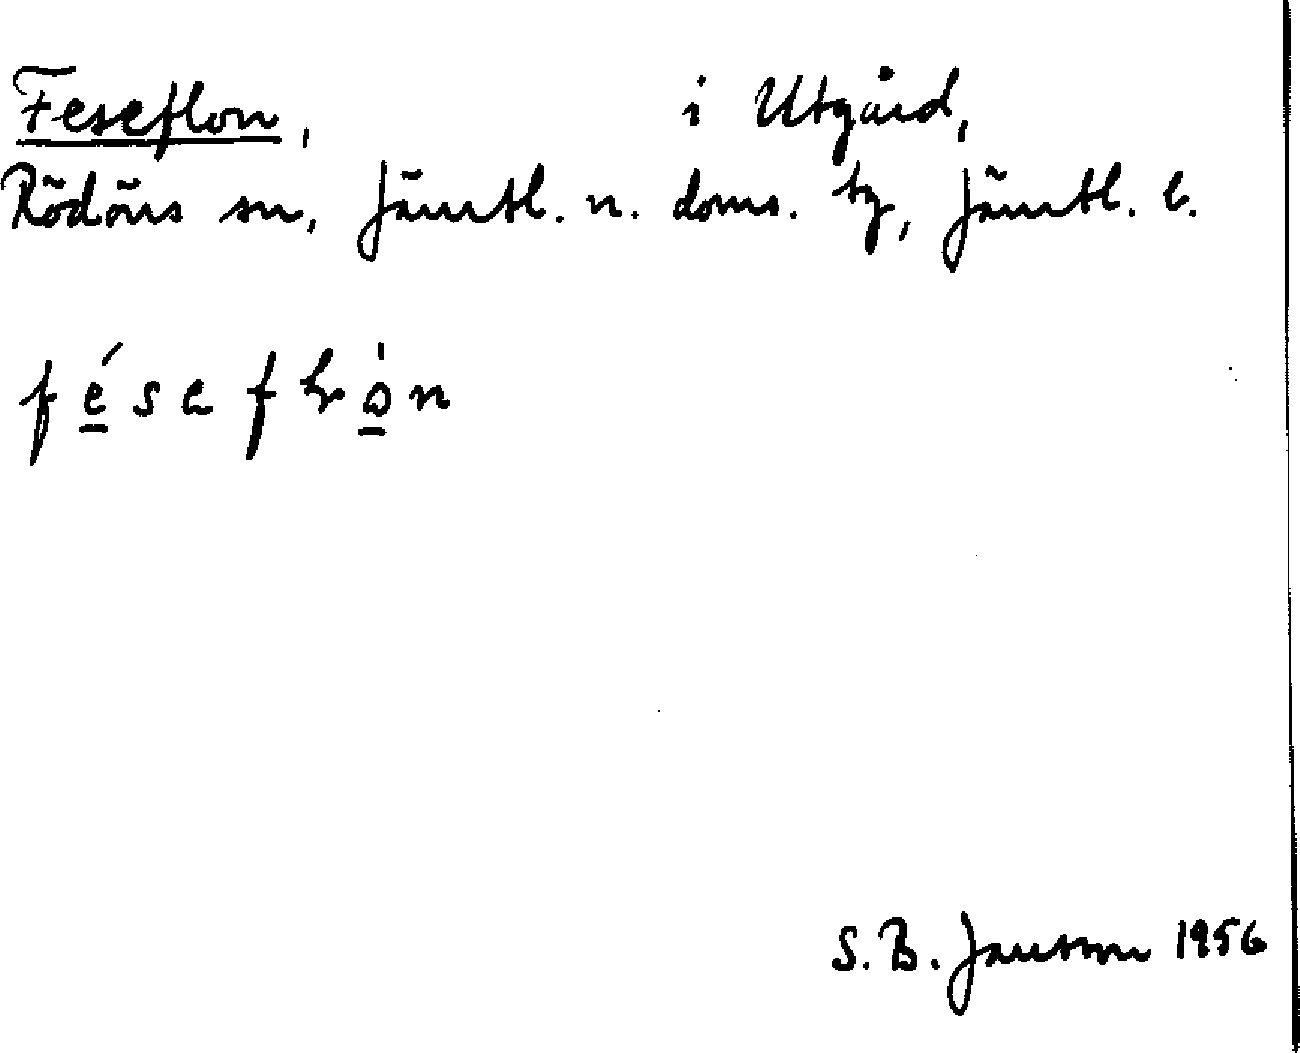 Feseflon, i Utgård,
Rödöns sn, Jämtl. n. doms. tg, Jämtl. l.
S. B. Jansson 1956